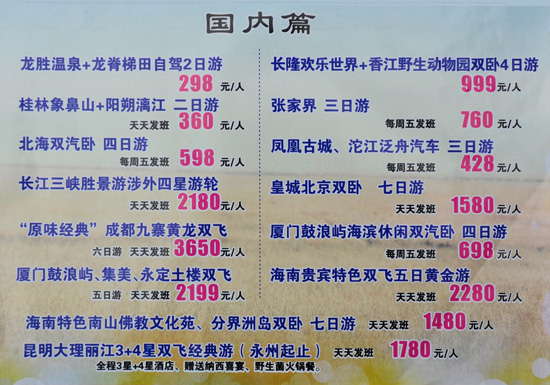 国内篇
龙胜温泉+龙脊梯田自驾2日游
298元/人
桂林象鼻山+阳朔漓江 二日游
天天发班 360元/人
北海双汽卧 四日游
每周五发班 598元/人
长江三峡胜景游涉外四星游轮
天天发班 2180元/人
“原味经典”成都九寨黄龙双飞
六日游 天天发班 3650元/人
厦门鼓浪屿、集美、永定土楼双飞
五日游 天天发班 2199元/人
长隆欢乐世界+香江野生动物园双卧4日游
999元/人
张家界 三日游
每周五发班 760元/人
凤凰古城、沱江泛舟汽车 三日游
每周五发班 428元/人
皇城北京双卧 七日游
天天发班 1580元/人
厦门鼓浪屿海滨休闲双汽卧 四日游
每周五发班 698元/人
海南贵宾特色双飞五日黄金游
天天发班 2280元/人
海南特色南山佛教文化苑、分界洲岛双卧 七日游 天天发班 1480元/人
昆明大理丽江3+4星双飞经典游（永州起止） 天天发班 1780元/人
全程3星+4星酒店、赠送纳西喜宴、野生菌火锅餐。